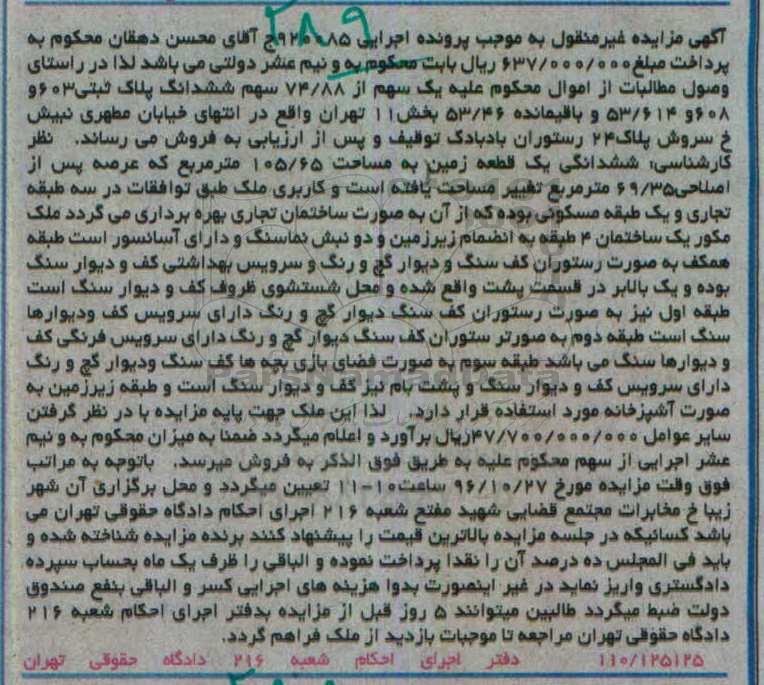 ۳۸۹
آگهی مزایده غیرمنقول به موجب پرونده اجرایی ۹۲۰۰۸۵ج آقای محسن دهقان محکوم به
پرداخت مبلغ۶۳۷/۰۰۰/۰۰۰ ریال بابت محکوم به و نیم عشر دولتی می باشد لذا در راستای
وصول مطالبات از اموال محکوم علیه یک سهم از ۷۴/۸۸ سهم ششدانگ پلاک ثبتی۶۰۳و
۶۰۸و ۵۳/۶۱۴ و باقیمانده ۵۳/۴۶ بخش۱۱ تهران واقع در انتهای خیابان مطهری نبیش
خ سروش پلاک۲۴ رستوران بادبادک توقیف و پس از ارزیابی به فروش می رساند. نظر
کارشناسی: ششدانگی یک قطعه زمین به مساحت ۱۰۵/۶۵ مترمربع که عرصه پس از
اصلاحی۶۹/۳۵ مترمربع تغییر مساحت یافته است و کاربری ملک طبق توافقات در سه طبقه
تجاری و یک طبقه مسکونی بوده که از آن به صورت ساختمان تجاری بهره برداری می گردد ملک
مکور یک ساختمان ۴ طبقه به انضمام زیرزمین و دو نبش نماسنگ و دارای آسانسور است طبقه
همکف به صورت رستوران کف سنگ و دیوار گچ و رنگ و سرویس بهداشتی کف و دیوار سنگ
بوده و یک بالابر در قسمت پشت واقع شده و محل شستشوی ظروف کف و دیوار سنگ است
طبقه اول نیز به صورت رستوران کف سنگ دیوار گچ و رنگ دارای سرویس کف ودیوارها
سنگ است طبقه دوم به صورتر ستوران کف سنگ دیوار گچ و رنگ دارای سرویس فرنگی کف
و دیوارها سنگ می باشد طبقه سوم به صورت فضای بازی بچه ها کف سنگ ودیوار گچ و رنگ
دارای سرویس کف و دیوار سنگ و پشت بام نیز کف و دیوار سنگ است و طبقه زیرزمین به
صورت آشپزخانه مورد استفاده قرار دارد. لذا این ملک جهت پایه مزایده با در نظر گرفتن
سایر عوامل ۴۷/۷۰۰/۰۰۰/۰۰۰ریال برآورد و اعلام میگردد ضمنا به میزان محکوم به و نیم
عشر اجرایی از سهم محکوم علیه به طریق فوق الذکر به فروش میرسد. باتوجه به مراتب
فوق وقت مزایده مورخ ۹۶/۱۰/۲۷ ساعت۱۰-۱۱ تعیین میگردد و محل برگزاری آن شهر
زیبا خ مخابرات مجتمع قضایی شهید مفتح شعبه ۲۱۶ اجرای احکام دادگاه حقوقی تهران می
باشد کسانیکه در جلسه مزایده بالاترین قیمت را پیشنهاد کنند برنده مزایده شناخته شده و
باید فی المجلس ده درصد آن را نقدا پرداخت نموده و الباقی را ظرف یک ماه بحساب سپرده
دادگستری واریز نماید در غیر اینصورت بدوا هزینه های اجرایی کسر و الباقی بنفع صندوق
دولت ضبط میگردد طالبین میتوانند ۵ روز قبل از مزایده بدفتر اجرای احکام شعبه ۲۱۶
دادگاه حقوقی تهران مراجعه تا موجبات بازدید از ملک فراهم گردد.
۱۱۰/۱۲۵۱۲۵ دفتر اجرای احکام شعبه ۲۱۶ دادگاه حقوقی تهران